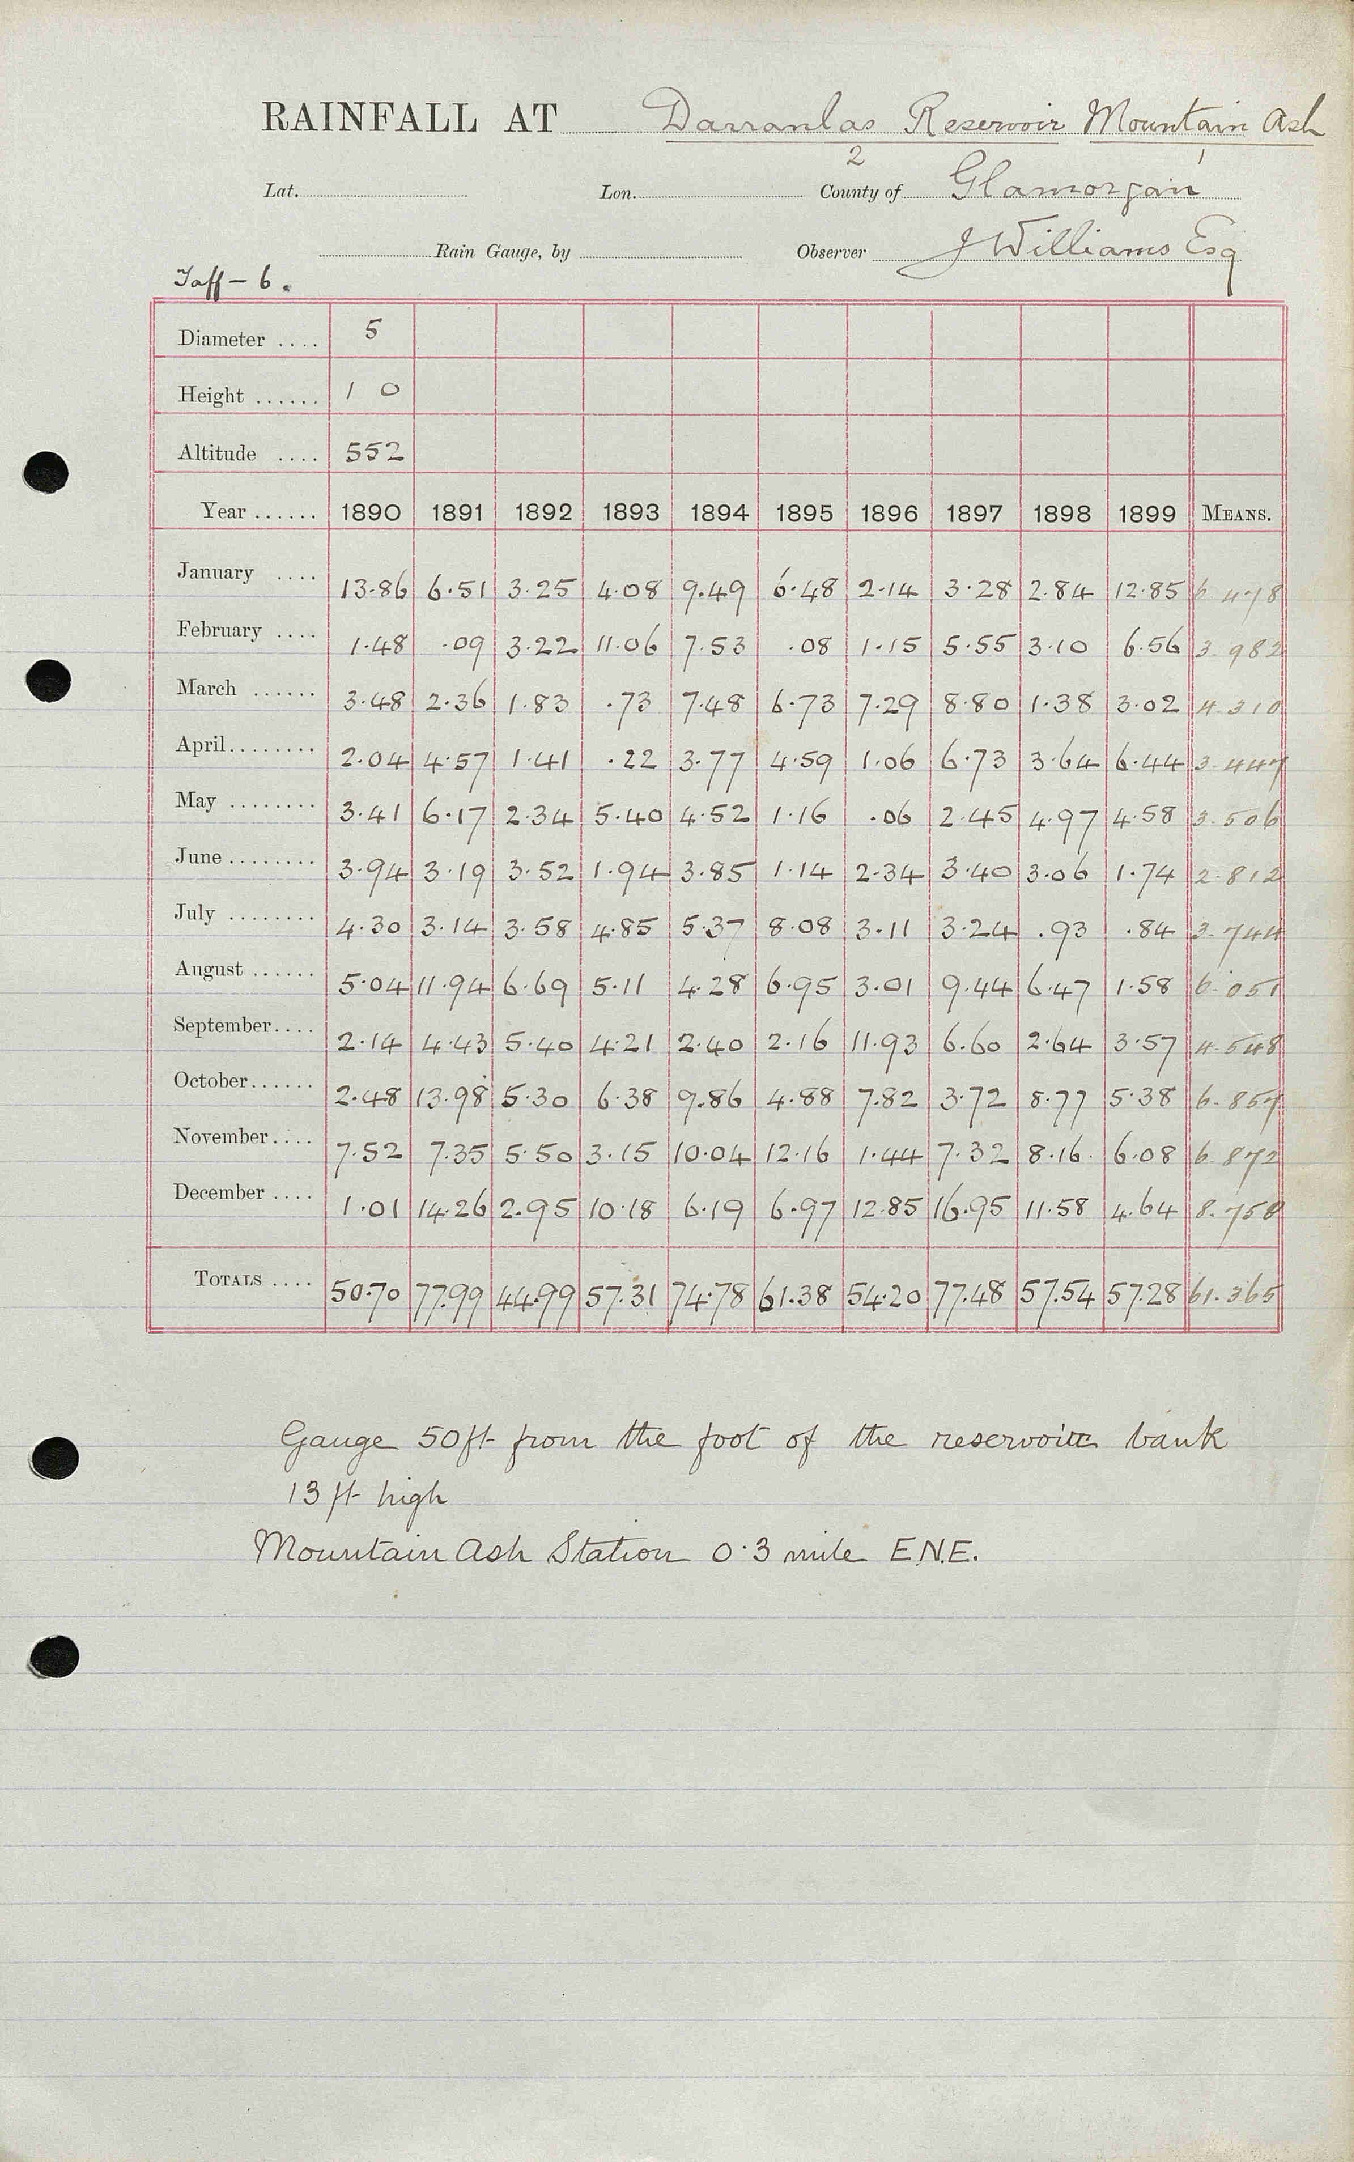 RAINFALL AT Darranlas Reservoir Mountain Ash
2 1
Lat. Lon. County of Glamorgan
Rain Gauge, by Observer J Williams Esq
Taff - 6.
Diameter .... 5
Height ...... 1 0
Altitude .... 552
Year ...... 1890 1891 1892 1893 1894 1895 1896 1897 1898 1899 MEANS.
January .... 13.86 6.51 3.25 4.08 9.49 6.48 2.14 3.28 2.84 12.85 6.478
February .... 1.48 .09 3.22 11.06 7.53 .08 1.15 5.55 3.10 6.56 3.982
March ...... 3.48 2.36 1.83 .73 7.48 6.73 7.29 8.80 1.38 3.02 4.310
April ........ 2.04 4.57 1.41 .22 3.77 4.59 1.06 6.73 3.64 6.44 3.447
May ........ 3.41 6.17 2.34 5.40 4.52 1.16 .06 2.45 4.97 4.58 3.506
June ........ 3.94 3.19 3.52 1.94 3.85 1.14 2.34 3.40 3.06 1.74 2.812
July ........ 4.30 3.14 3.58 4.85 5.37 8.08 3.11 3.24 .93 .84 3.744
August ...... 5.04 11.94 6.69 5.11 4.28 6.95 3.01 9.44 6.47 1.58 6.051
September .... 2.14 4.43 5.40 4.21 2.40 2.16 11.93 6.60 2.64 3.57 4.548
October ...... 2.48 13.98 5.30 6.38 9.86 4.88 7.82 3.72 8.77 5.38 6.857
November .... 7.52 7.35 5.50 3.15 10.04 12.16 1.44 7.32 8.16 6.08 6.872
December .... 1.01 14.26 2.95 10.18 6.19 6.97 12.85 16.95 11.58 4.64 8.758
TOTALS .... 50.70 77.99 44.99 57.31 74.78 61.38 54.20 77.48 57.54 57.28 61.365
Gauge 50ft from the foot of the reservoir bank
13 ft high
Mountain Ash Station 0.3 mile E.N.E.